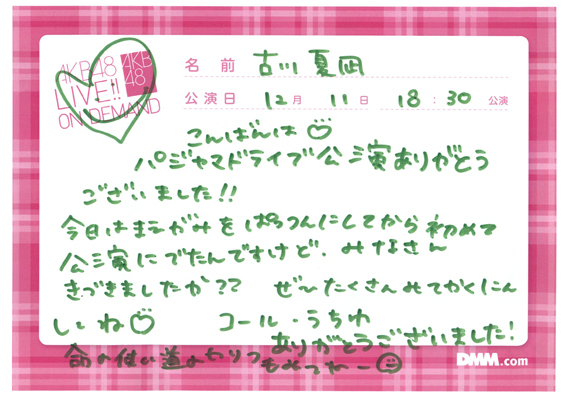 AKB48
LIVE!!
ON DEMAND
AKB
48
名前 古川夏凪
公演日 12月 11日 18:30 公演
こんばんは♡
パジャマドライブ公演ありがとう
ございました!!
今日はまえがみをぱっつんにしてから初めて
公演にでたんですけど、みなさん
きづきましたか?? ぜ〜たくさんみてかくにん
しいね♡ コール・うちわ
ありがとうございました!
命の使い道
もみてねー
DMM.com